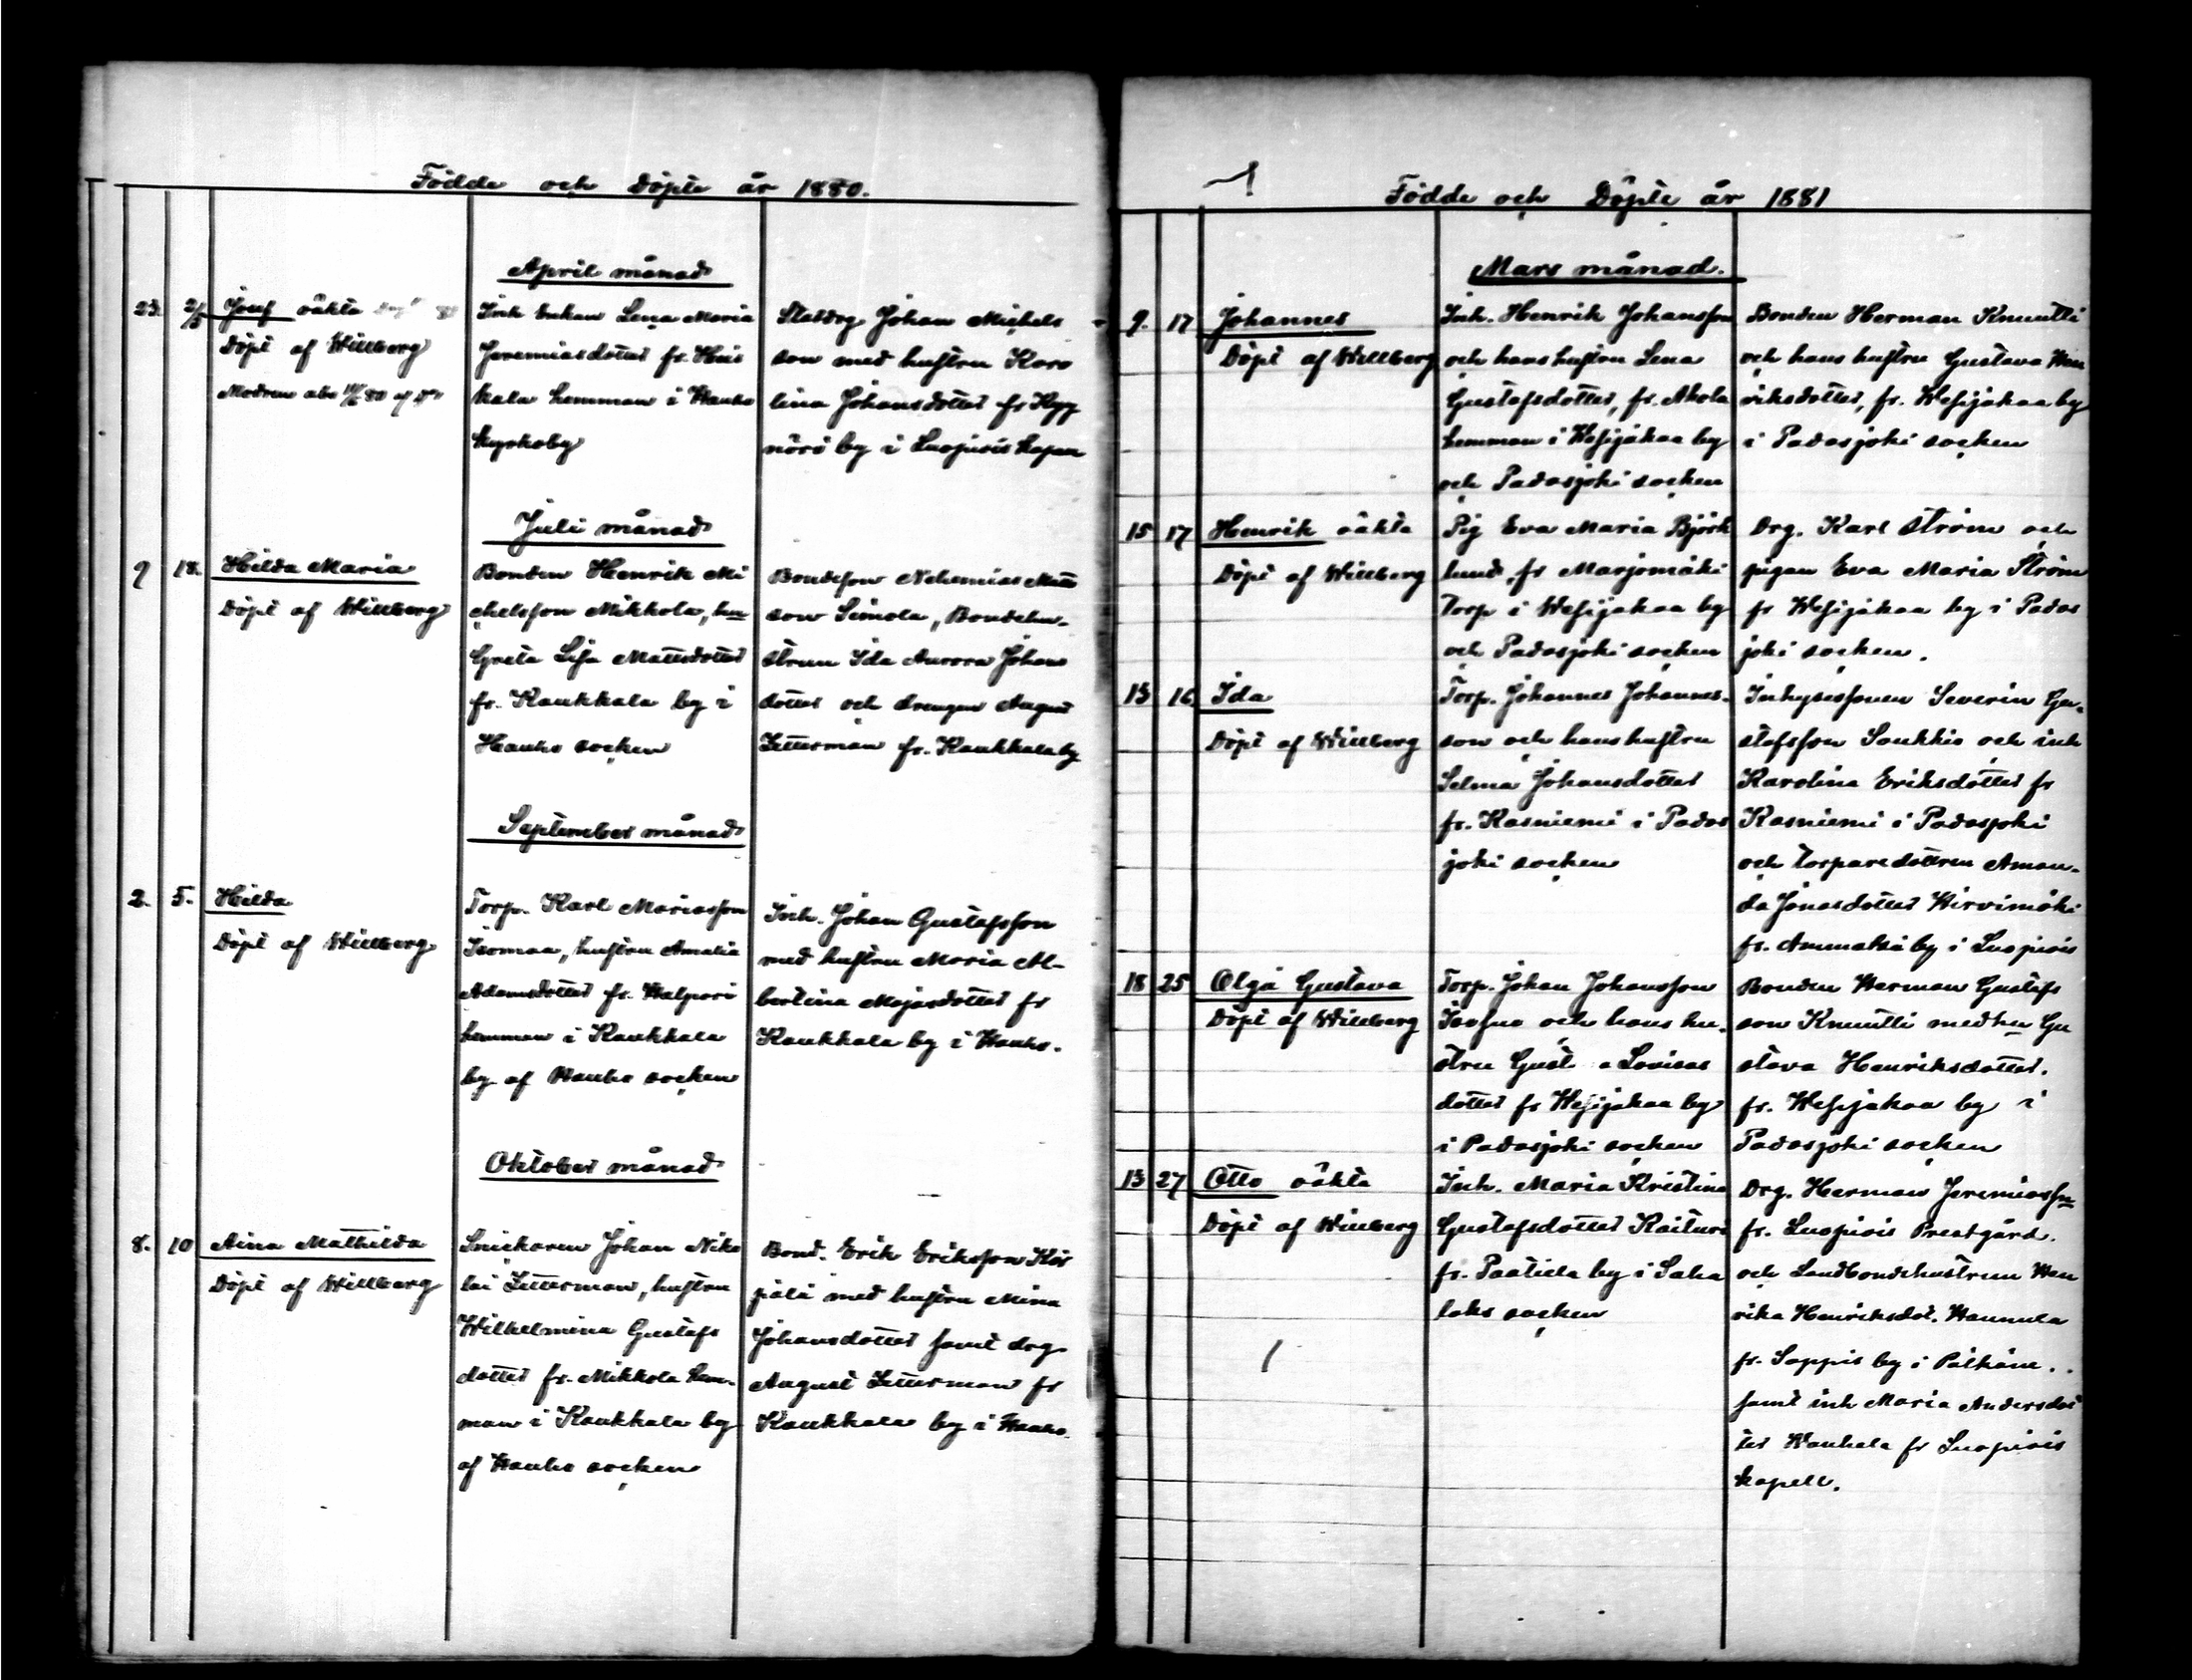 Födde och Döpte år 1880.
April månad
23. 2/5 Josef oäkta
Döpt af Willberg
Modren abs
Inh enkan Lena Maria
Jeremiasdotter fr. Heis
kala hemman i Hauho
kyrkoby
Statdrg Johan Michels
son med hustru Karo
lina Johansdotter fr Kyy
närö by i Luopiois kapen
Juli månad
9 18. Hilda Maria
Döpt af Willberg
Bonden Henrik Mi
chelsson Mikkola, hu
Greta Lisa Mattsdotter
fr. Kaukkala by i
Hauho socken
Bondeson Nehemias Matts
son Simola, Bondehu-
strun Ida Aurora Johans
dotter och drengen August
Zetterman fr. Kaukkala by
September månad
2. 5. Hilda
Döpt af Willberg
Torp. Karl Mariasson
Isomaa, hustru Amalia
Adamsdotter fr. Walpari
hemman i Kaukkala
by af Hauho socken
Inh. Johan Gustafsson
med hustru Maria Al-
bertina Majasdotter fr
Kaukkala by i Hauho.
Oktober månad
8. 10 Aina Mathilda
Döpt af Willberg
Snickaren Johan Niko
lai Zetterman, hustru
Wilhelmina Gustafs
dotter fr. Mikkola hem-
man i Kaukkala by
af Hauho socken
Bond. Erik Eriksson Kör
pälä med hustru Mina
Johansdotter samt drg
August Zetterman fr
Kaukkala by i Hauho
Födde och Döpte år 1881
Mars månad.
9. 17 Johannes
Döpt af Willberg
Inh. Henrik Johansson
och hans hustru Lena
Gustafsdotter, fr. Ahola
hemman i Wesijakaa by
och Padasjoki socken
Bonden Herman Knuutti
och hans hustru Gustava Hen
riksdotter, fr. Wesijakaa by
i Padasjoki socken
15 17 Henrik oäkta
Döpt af Willberg
Pig Eva Maria Björk
lund fr Marjomäki
Torp i Wesijakaa by
och Padasjoki socken
Drg. Karl Ström och
pigan Eva Maria Ström
fr Wesijakaa by i Padas
joki socken.
13 16 Ida
Döpt af Willberg
Torp. Johannes Johannes-
son och hans hustru
Selma Johansdotter
fr. Kasniemi i Padas
joki socken
Inhysessonen Severin Gu-
stafsson Saukkio och inh
Karolina Eriksdotter fr
Kasniemi i Padasjoki
och torparedottren Aman-
da Jonasdotter Hirvimäki
fr. Ammatsä by i Luopiois
18 25 Olga Gustava
Döpt af Willberg
Torp. Johan Johansson
Isosuo och hans hu-
stru Gust a Lovisas
dotter fr Wesijakaa by
i Padasjoki socken
Bonden Herman Gustafs
son Knuutti med hu Gu
stava Henriksdotter.
fr. Wesijakaa by i
Padasjoki socken
13 27 Otto oäkta
Döpt af Willberg
Inh. Maria Kristina
Gustafsdotter Raituri
fr. Paatiela by i Saha
laks socken
Drg. Herman Jeremiassn
fr. Luopiois Prestgård.
och Landbondehustrun Hen
rika Henriksdot. Hannula
fr. Sappis by i Pälkäne.
samt inh Maria Andersdot
ter Wanhala fr Luopiois
kapell.